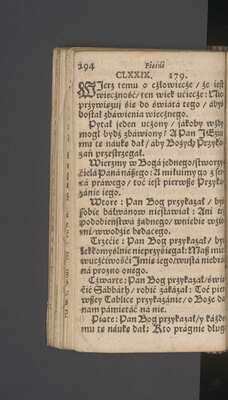 294 Pieśni
CLXXIX. 179.
WIerz temu o człowiecze / że jest
wieczność / ten wiek uciecze: Nie
przywiązuj się do świata tego / abyś
dostał zbawienia wiecznego.
Pytał jeden uczony / jakoby wżdy
mogł bydź zbawiony? A Pan JEzus
mu tę naukę dał / aby Bożych Przyka-
zań przestrzegał.
Wierzmy w Bogá jednego / stworzy-
ćiela Paná nászego: A miłujmy go z ser-
cá prawego / toć jest pierwsze Przyka-
zánie jego.
Wtore: Pan Bog przykazał / byś
sobie báłwanow niestawiał: Ani też
podobieństwá żadnego / w niebie w zie-
mi / w wodzie będacego.
Trzećie: Pan Bog przykazał / byś
lekkomyślnie nieprzyśięgał: Maß mieć
w uczćiwośći Imię jego / w usta niebráć
na prozno onego.
Czwarte: Pan Bog przykazał / świę-
ćić Sábbáth / robić zakazał: Toć pier-
wßey Tablice przykazánie / o Boże day
nam pámiętáć na nie.
Piąte: Pan Bog przykazał / y káżde-
mu tę náukę dał: Kto prágnie długo